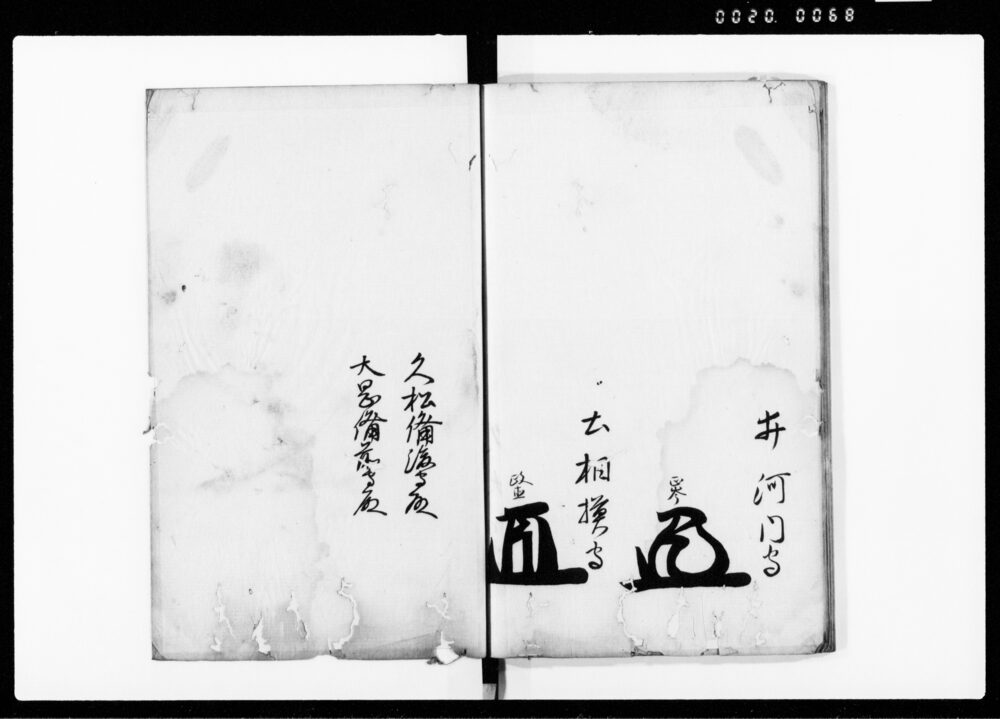 0020 0068
井河内守
正岑
土相模守
政直
久松備後守殿
大岡備前守殿